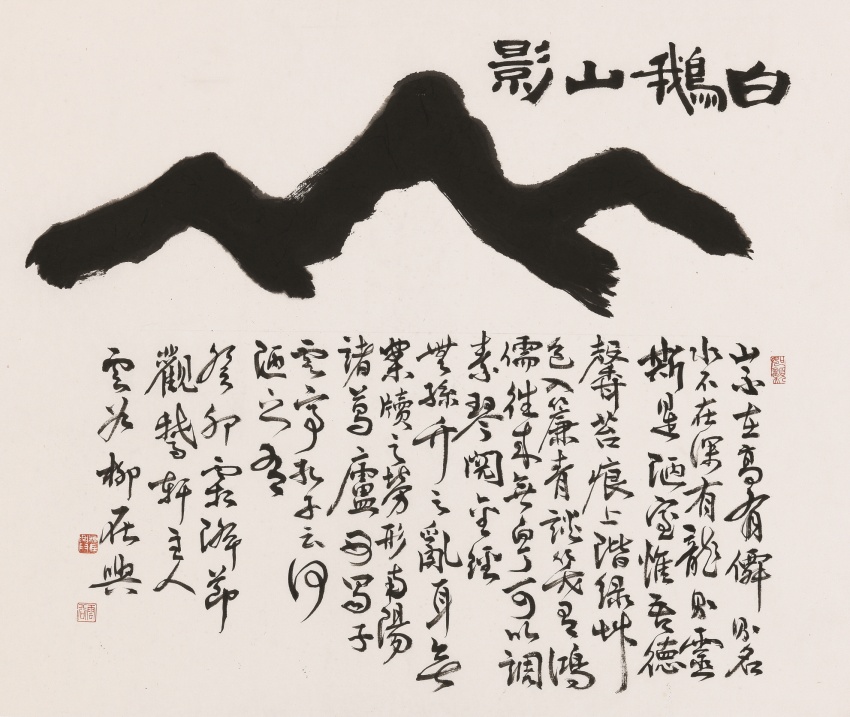 白鵝山影
山不在高有僊則名
水不在深有龍則靈
斯是陋室惟吾德
馨苔痕上階綠艸
色入簾青談笑有鴻
儒往來無白丁可以調
素琴閱金經
無絲竹之亂耳無
案牘之勞形南陽
諸葛廬西蜀子
雲亭孔子云何
陋之有
癸卯霜降節
觀鵞軒主人
雲谷柳